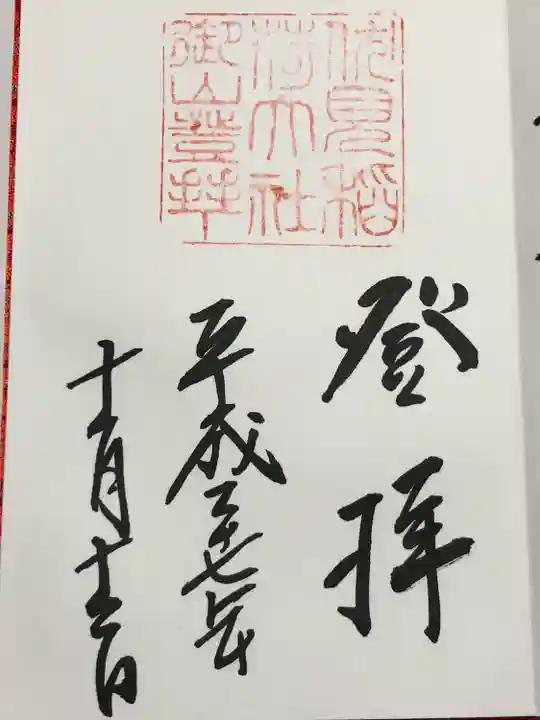 伏見稲
荷大社
御山登拝
登拝
平成二十七年
十二月十二日